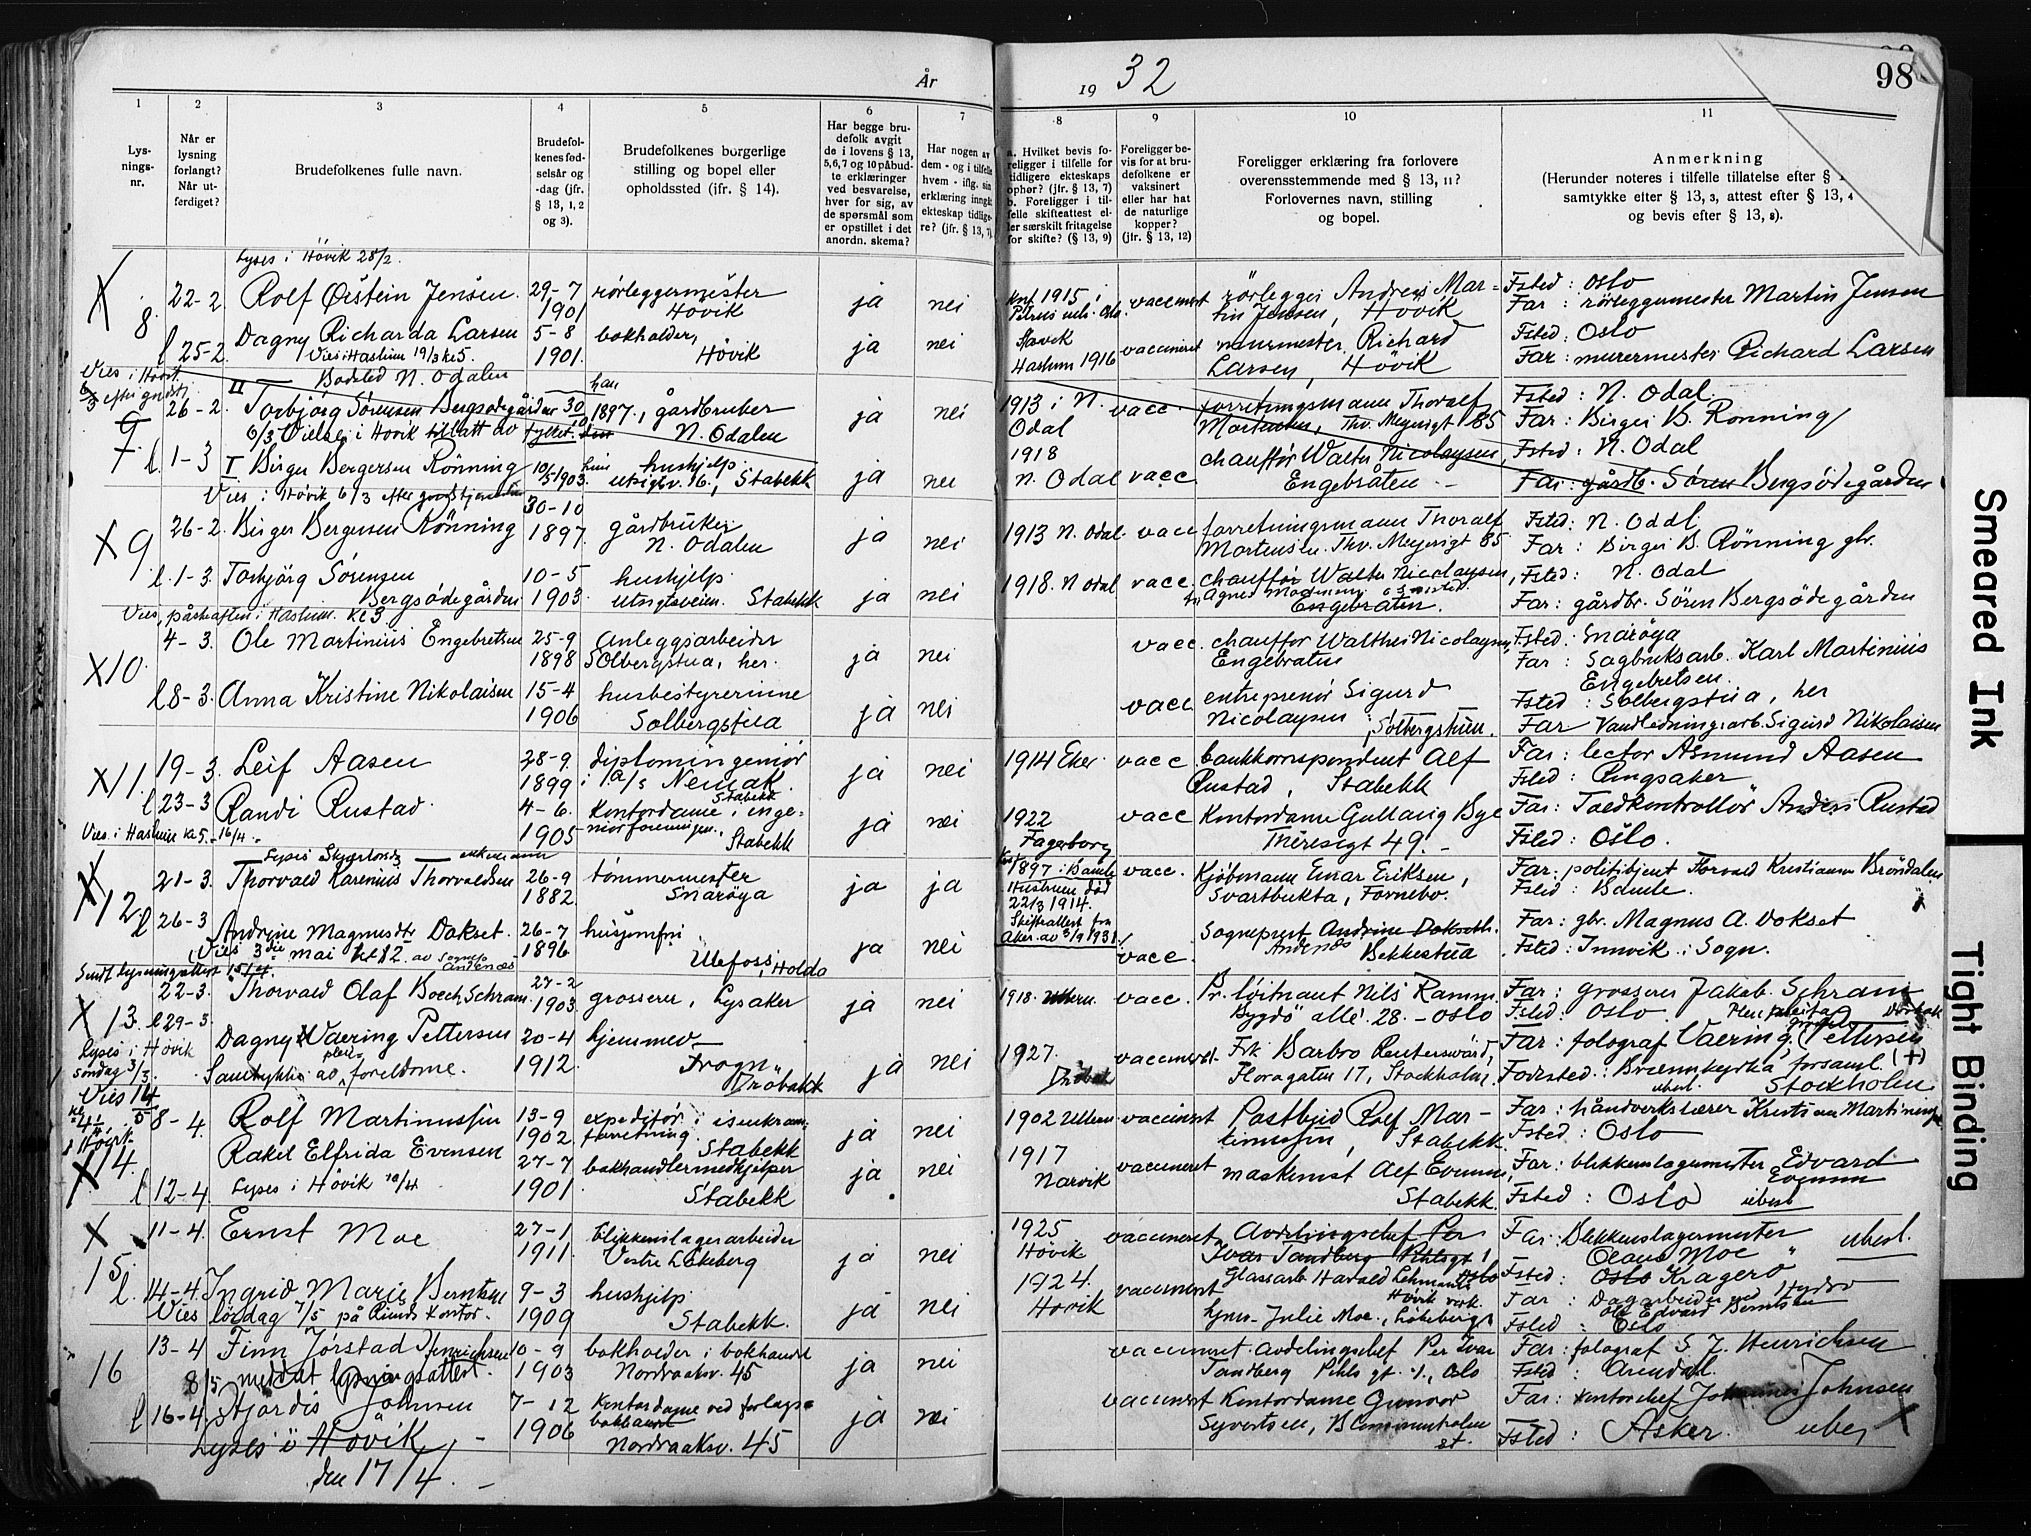 År
19 32
98
1
2
3
4
5
6
7
8
9
10
11
Lys-
nings-
nr.
Når er
lysning
forlangt?
Når ut-
ferdiget?
Brudefolkenes fulle navn.
Brudefol-
kenes fød-
selsår og
-dag (jfr.
§ 13, 1, 2
og 3).
Brudefolkenes borgerlige
stilling og bopel eller
opholdssted (jfr. § 14).
Har begge bru-
defolk avgit
de i lovens § 13,
5,6,7 og 10 påbud-
te erklæringer
ved besvarelse,
hver for sig, av
de spørsmål som
er opstillet i det
anordn. skema?
Har nogen av
dem - og i tilfelle
hvem - iflg. sin
erklæring inngått
ekteskap tidlige-
re? (jfr. § 13, 7)
a. Hvilket bevis fo-
religger i tilfelle for
tidligere ekteskaps
ophør? (jfr. § 13, 7)
b. Foreligger i til-
felle skifteattest el-
ler særskilt fritagelse
for skifte? (§ 13, 9)
Foreligger be-
vis for at bru-
defolkene er
vaksinert
eller har hat
de naturlige
kopper?
(jfr. § 13, 12)
Foreligger erklæring fra forlovere
overensstemmende med § 13, 11?
Forlovernes navn, stilling
og bopel.
Anmerkning
(Herunder noteres i tilfelle tillatelse efter §
samtykke efter § 13, 3, attest efter § 13, 4
og bevis efter § 13, 8).
Lyses i Høvik 28/2.
X 8. 22-2. Rolf Østein Jensen. 29-7 1901 rørleggermester Høvik ja nei 1915, vaccinert rørlegger Andreas Mar-tin Jensen, Høvik Fsted: Oslo Far: rørleggermester Martin Jensen
l 25-2. Dagny Richarda Larsen 5-8 1901. bokholder, Høvik ja nei Haslum 1916 vaccineret murmester Richard Larsen, Høvik Fsted: Oslo Far: murermester Richard Larsen
Vies i Haslum 19/3 kl 5.
Bosted N. Odalen
9 26-2. II Torbjörg Sørensen Bergsødegården 30 1897, gårdbruker N. Odalen ja nei 1913 i N. Odal vacc. forretningsmann Thoralf Martensen, Thv. Meyersgt 85 Fsted: N. Odal Far: Birger B. Rønning
6/3 Vielse i Høvik tillatt av
l. 1-3 I Birger Bergersen Rönning 10/5 1903. hushjelp. Utsigtsv. 16., Stabekk ja nei 1918 N. Odal vacc chauffør Walter Nicolaysen, Engebråten Fsted: N. Odal Far: gårdb. Søren Bergsödegården
Vies i Høvik 6/3 efter gudstjenesten
X 9. 26-2. Birger Bergersen Rönning 30-10 1897. gårdbruker N. Odalen ja nei 1913 N. Odal vacc forretningsmann Thoralf Martensen. Thv. Meyersgt 85 Fsted: N. Odal Far: Birger B. Rönning gbr.
l. 1-3. Torbjörg Sörensen Bergsödegården 10-5 1903. hushjelp. Utsigtsveien. Stabekk ja nei 1918. N Odal vacc. chauffør Walter Nicolaysen, Engebråten. Fsted: N. Odal Far: gårdbr. Sören Bergsödegården
Vies, påskaften i Haslum. Kl 3.
X 10. 4-3. Ole Martinius Engebretsen 25-9 1898 Anleggsarbeider Solbergstua, her. ja nei vacc. chauffør Walther Nicolaysen, Engebråten Fsted: Snarøya Far: Sagbruksarb. Karl Martinius Engebretsen.
l 8-3. Anna Kristine Nikolaisen 15-4 1906 husbestyrerinne Solbergstua ja nei vacc. entreprenör Sigurd Nicolaysen, Solbergstuen. Fsted: Solbergstua, her Far Vandledningsarb. Sigurd Nikolaisen
X 11. 19-3. Leif Aasen 28-9. 1899 diplomingeniör i A/s Nemak. Stabekk ja nei 1914 Eker vacc bankkorrespondent Alf Rustad, Stabekk Far: lector Asmund Aasen Fsted: Ringsaker
l 23-3 Randi Rustad. 4-6. 1905 Kontordame i ingeniørforeningen. Stabekk ja nei 1922 Fagerborg vacc Kontordame Gullaug Bye Theresegt 49. Far: Toldkontrollør Anders Rustad Fsted: Oslo.
Vies i Haslum kl 5. 16/4.
X 12. 21-3. Thorvald Karenius Thorvaldsen 26-9 1882. tømmermester Snarøya ja ja 1897 i Bamle Hustruen død 22/3 1914. Skifteattest fra Aker av 3/9 1931 vacc. Kjøbmann Einar Eriksen, Svartbukta, Fornebo. Far: politibetjent Torvald Kristiansen Brøndalen Fsted: Bamle.
l 26-3 Andrine Magnusdtr Dokset. 26-7 1896 husjomfru Ulefoss, Holda ja nei vacc. Sogneprest Andenæs Bekkestua Far: gbr. Magnus A. Dokset Fsted: Innvik i Sogn.
Vies 3die mai kl 12
Sendt lysningsattest 15/4.
X 13. 22-3. Thorvald Olaf Boech Schram 27-2 1903 grosserer, Lysaker ja nei 1918. Ullern vacc. Pr. løitnant Nils Ramm. Bygdö allé 28. - Oslo Far: grosserer Jakob Schram Fsted: Oslo
l 29-3. Dagny Waering Pettersen 20-4 1912. hjemmev. Frogn, Drøbakk ja nei 1927. Drøbak vaccinert. Frk Barbro Reuterswärd, Floragaten 17, Stockholm, Far: fotograf Vaering, Pettersen (+) Fodested: Brännkyrka forsaml. Stockholm
Samtykke av foreldrene.
Lyses i Høvik söndag 3/3.
Vies 14/5
X 14. 8-4. Rolf Martinussen 13-9 1902 expeditör i isenkram-forretning. Stabekk ja nei 1902 Ullern vaccinert Postbud Rolf Mar-tinussen, Stabekk. Far: håndverkslærer Kristian Martinussen Fsted: Oslo
l 12-4 Rakel Elfrida Evensen 27-7 1901. bokhandlermedhjelper Stabekk ja nei 1917 Narvik vaccineret maskinist Alf Evensen, Stabekk. Far: blikkenslagermester Edvard Evensen Fsted: Oslo ubesl
Lyses i Høvik 10/4
X 15. 11-4. Ernst Moe 27-1 1911. blikkenslagerarbeider Vestre Løkeberg ja nei 1925 Høvik vaccineret Avdelingschef Per Ivar Tandberg Pihlsgt 1 Oslo Glassarb Harald Lehmann Høvik verk. Far: Blikkenslagermester Olaus Moe Fsted: Oslo Kragerø ubesl.
l. 14-4. Ingrid Marie Berntsen 9-3 1909 hushjelp Stabekk. ja nei 1924. Høvik vaccinert Julie Moe, Løkeberg Far: Dagarbeider ved Hydro Ole Edvard Berntsen Fsted: Oslo
Vies lördag 7/5 på Lunds kontor.
16 13-4 Finn Jørstad Henrichsen 10-9 1903 bokholder i bokhandel Nordraaksv. 45 ja nei vaccineret. avdelingschef Per Ivar Tandberg Pihls gt. 1, Oslo Far: fotograf S. J. Henrichsen Fsted: Arendal.
8/5 meddelt lysningsattest.
l 16-4 Hjördis Johnsen 7-12 1906 Kontordame ved forlags-bokhandel Nordraaksv. 45 ja nei vaccineret Kontordame Gunvor Syvertsen, Blommenholm st. Far: kontorchef Johannes Johnsen Fsted: Asker. ubesl
Lyses i Høvik
den 17/4.
Smeared Ink
Tight Binding